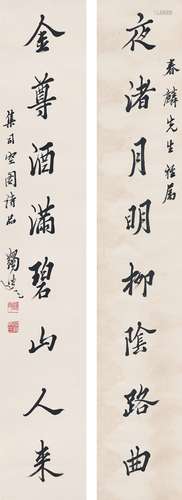 春麟先生雅属
夜渚月明柳陰路曲
金尊酒滿碧山人来
集司空圖詩品